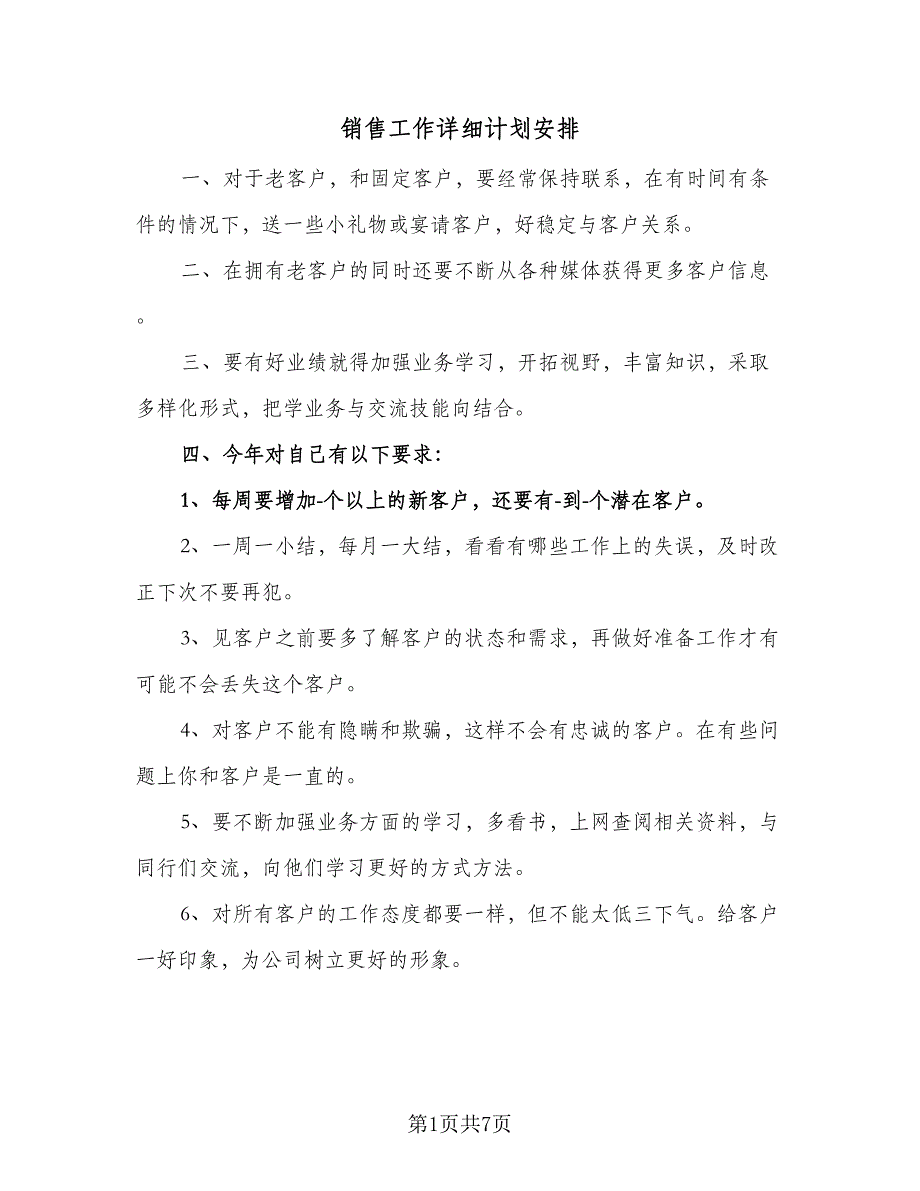 销售工作详细计划安排
一、对于老客户，和固定客户，要经常保持联系，在有时间有条
件的情况下，送一些小礼物或宴请客户，好稳定与客户关系。
二、在拥有老客户的同时还要不断从各种媒体获得更多客户信息
。
三、要有好业绩就得加强业务学习，开拓视野，丰富知识，采取
多样化形式，把学业务与交流技能向结合。
四、今年对自己有以下要求：
1、每周要增加-个以上的新客户，还要有-到-个潜在客户。
2、一周一小结，每月一大结，看看有哪些工作上的失误，及时改
正下次不要再犯。
3、见客户之前要多了解客户的状态和需求，再做好准备工作才有
可能不会丢失这个客户。
4、对客户不能有隐瞒和欺骗，这样不会有忠诚的客户。在有些问
题上你和客户是一直的。
5、要不断加强业务方面的学习，多看书，上网查阅相关资料，与
同行们交流，向他们学习更好的方式方法。
6、对所有客户的工作态度都要一样，但不能太低三下气。给客户
一好印象，为公司树立更好的形象。
第1页共7页